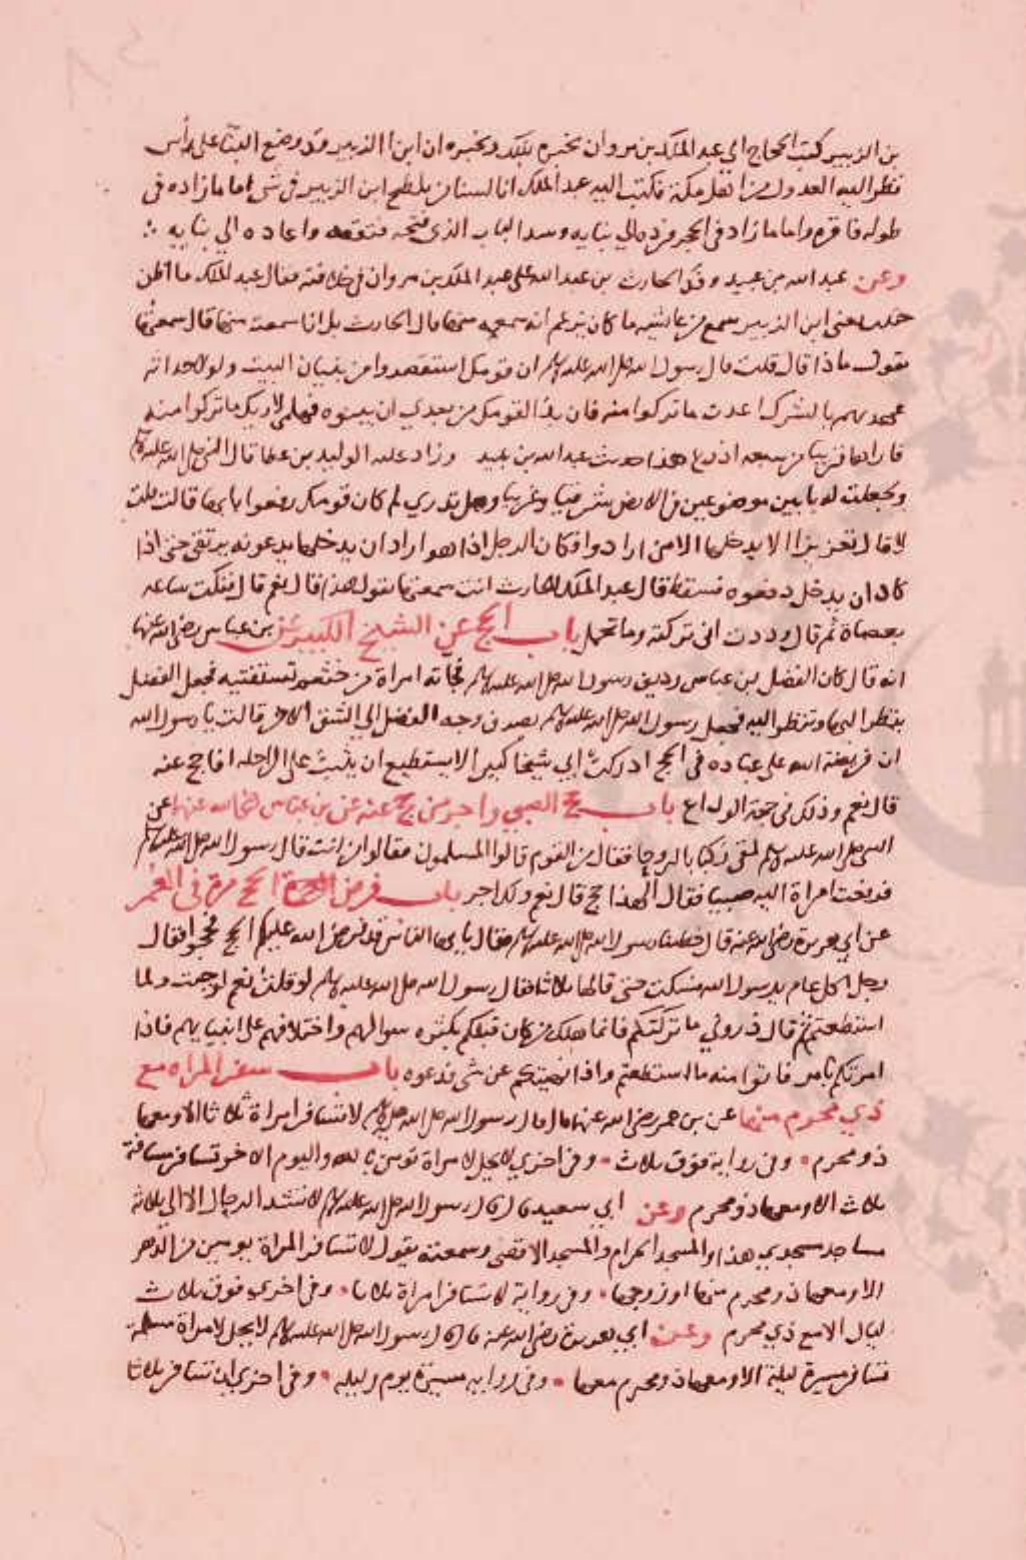 بن الزبير كتب الحجاج الي عبد الملك بن مروان يخبره بذلك ويخبره ان ابن الزبير قد وضع البنا على اس
نظر اليه العدول من اهل مكة فكتب اليه عبد الملك انا لسنا من تلطيخ ابن الزبير في شي اما ما زاده في
طوله فاقره واما ما زاد في الحجر فرده الي بنايه وسد الباب الذي فتحه فنقضه واعاده الي بنايه
وعن عبد الله بن عبيد وفد الحارث بن عبد الله على عبد الملك بن مروان في خلافته فقال عبد الملك ما اظن
خبيب يعني ابن الزبير سمع من عايشه ما كان يزعم انه سمعه منها قال الحارث بل انا سمعته منها قال سمعتها
تقول ماذا قال قلت قال رسول الله صلى الله عليه وسلم ان قومك استقصروا من بنيان البيت ولولا حداثه
عهدهم بالشرك اعدت ما تركوا منه فان بدا لقومك من بعدي ان يبنوه فهلمي لاريك ما تركوا منه
فاراها قريبا من سبعه اذرع هذا حديث عبد الله بن عبيد وزاد عليه الوليد بن عطا قال النبي صلى الله عليه وسلم
ولجعلت له بابين موضوعين في الارض شرقيا وغربيا وهل تدري لم كان قومك رفعوا بابها قالت قلت
لا قال تعززا ان لا يدخلها الا من ارادوا فكان الرجل اذا هو اراد ان يدخلها يدعونه يرتقي حتى اذا
كاد ان يدخل دفعوه فسقط قال عبد الملك للحارث انت سمعتها تقول هذا قال نعم قال فنكت ساعه
بعصاه ثم قال وددت اني تركته وما تحمل باب الحج عن الشيخ الكبير عن بن عباس رضي الله عنهما
انه قال كان الفضل بن عباس رديف رسول الله صلى الله عليه وسلم فجاته امراة من خثعم تستفتيه فجعل الفضل
ينظر اليها وتنظر اليه فجعل رسول الله صلى الله عليه وسلم يصرف وجه الفضل الي الشق الاخر قالت يا رسول الله
ان فريضة الله على عباده في الحج ادركت ابي شيخا كبيرا لا يستطيع ان يثبت على الراحله افاحج عنه
قال نعم وذلك في حجة الوداع باب حج الصبي واجر من حج عنه عن بن عباس رضي الله عنهما عن
النبي صلى الله عليه وسلم لقي ركبا بالروحا فقال من القوم قالوا المسلمون فقالوا من انت قال رسول الله صلى الله عليه وسلم
فرفعت امراة اليه صبيا فقال الهذا حج قال نعم ولك اجر باب فرض الحج مرة في العمر
عن ابي هريرة رضي الله عنه قال خطبنا رسول الله صلى الله عليه وسلم فقال يا ايها الناس قد فرض الله عليكم الحج فحجوا فقال
رجل اكل عام يا رسول الله فسكت حتى قالها ثلاثا فقال رسول الله صلى الله عليه وسلم لو قلت نعم لوجبت ولما
استطعتم ثم قال ذروني ما تركتكم فانما هلك من كان قبلكم بكثره سوالهم واختلافهم على انبيايهم فاذا
امرتكم بامر فاتوا منه ما استطعتم واذا نهيتكم عن شي فدعوه باب سفر المراه مع
ذي محرم منها عن بن عمر رضي الله عنهما قال قال رسول الله صلى الله عليه وسلم لا تسافر امراة ثلاثا الا ومعها
ذو محرم وفي رواية فوق ثلاث وفي اخري لا يحل لامراة تومن بالله واليوم الاخر تسافر مسافة
ثلاث الا ومعها ذو محرم وعن ابي سعيد قال قال رسول الله صلى الله عليه وسلم لا تشد الرحال الا الي ثلاثة
مساجد مسجدي هذا والمسجد الحرام والمسجد الاقصى وسمعته يقول لا تسافر المراة يومين من الدهر
الا ومعها ذو محرم منها او زوجها وفي رواية لا تسافر امراة ثلاثا وفي اخري فوق ثلاث
ليال الا مع ذي محرم وعن ابي هريرة رضي الله عنه قال قال رسول الله صلى الله عليه وسلم لا يحل لامراة مسلمة
تسافر مسيرة ليلة الا ومعها ذو محرم معها وفي رواية مسيرة يوم وليله وفي اخري ان تسافر ثلاثا